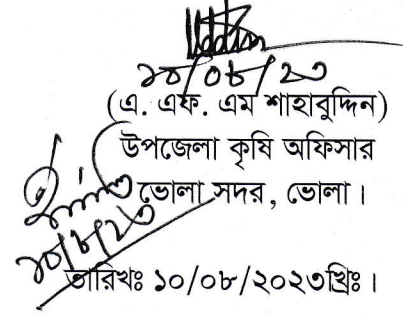 ১০/০৮/২৩
(এ. এফ. এম শাহাবুদ্দিন)
উপজেলা কৃষি অফিসার
ভোলা সদর, ভোলা।
১০/৮/২৩
তারিখঃ ১০/০৮/২০২৩খ্রিঃ।